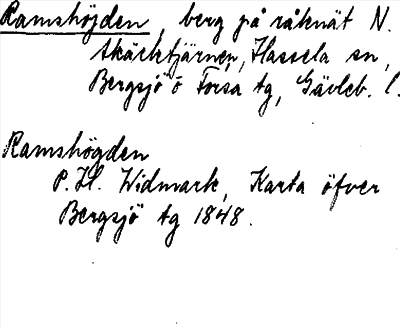 Ramshöjden, berg på råknät N.
Skärktjärnen, Hassela sn,
Bergsjö o Forsa tg, Gävleb. l.
Ramshögden
P. H. Widmark, Karta öfver
Bergsjö tg 1848.